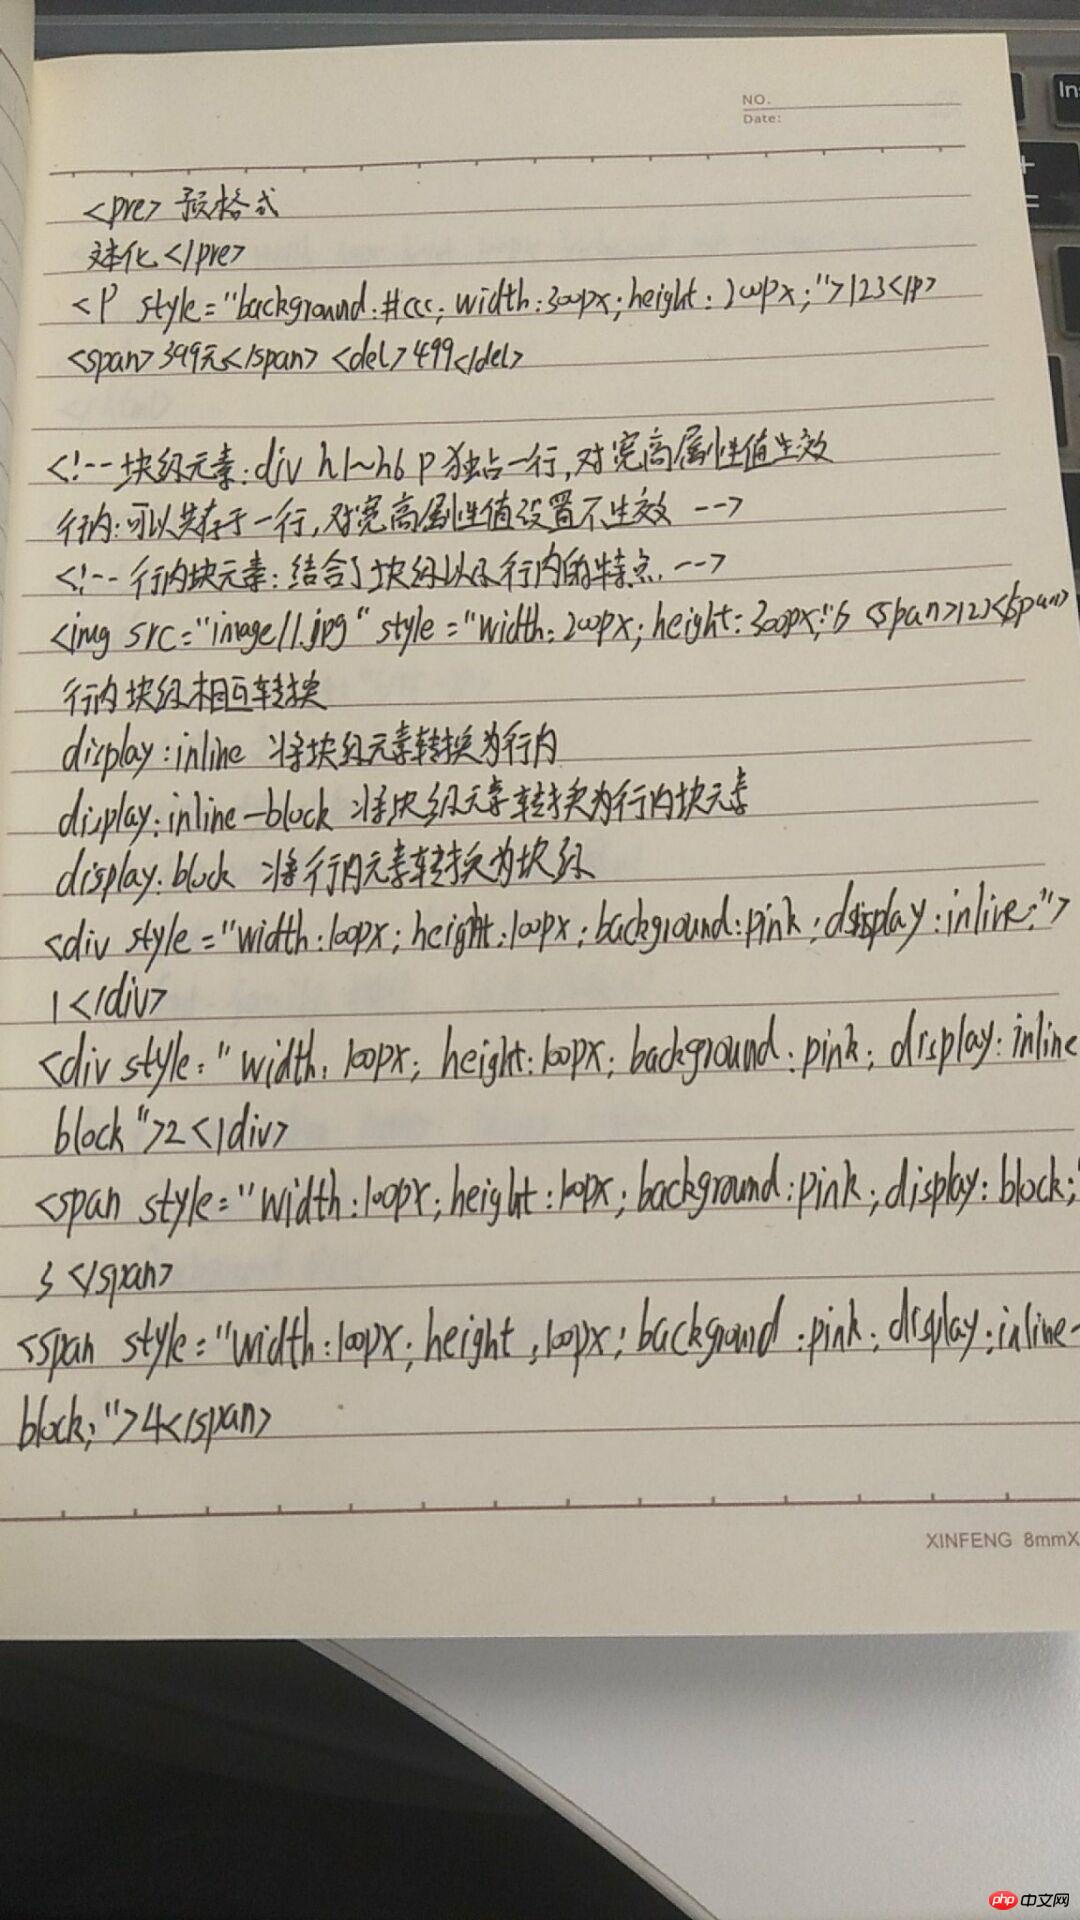 NO.
Date:
<pre> 预格式
文本化</pre>
<p style="background:#ccc; width:300px; height:200px;">123</p>
<span>399元</span> <del>499</del>
<!-- 块级元素:div h1~h6 p 独占一行,对宽高属性值生效
行内:可以共存于一行,对宽高属性值设置不生效 -->
<!-- 行内块元素:结合了块级以及行内的特点. -->
<img src="image/1.jpg" style="width:200px; height:300px;"> <span>123</span>
行内块级相互转换
display:inline 将块级元素转换为行内
display:inline-block 将块级元素转换为行内块元素
display:block 将行内元素转换为块级
<div style="width:100px; height:100px; background:pink; display:inline;">
1</div>
<div style="width:100px; height:100px; background:pink; display:inline
block">2</div>
<span style="width:100px; height:100px; background:pink; display:block;"
3</span>
<span style="width:100px; height:100px; background:pink; display:inline-
block;">4</span>
XINFENG 8mmX
In
php 中文网